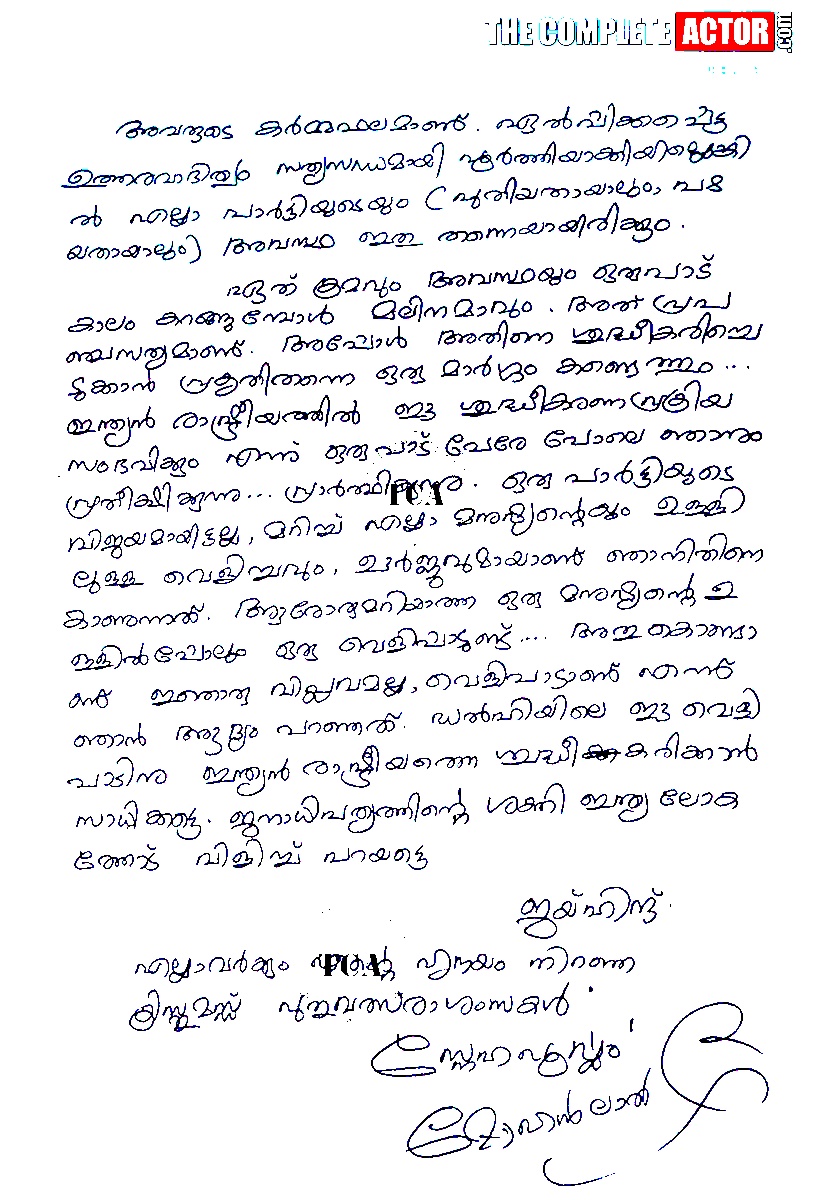 THE COMPLETE ACTOR .COM
അവരുടെ കർമ്മഫലമാണ്. ഏൽപ്പിക്കപ്പെട്ട
ഉത്തരവാദിത്വം സത്യസന്ധമായി പൂർത്തിയാക്കിയില്ലെങ്കി
ൽ എല്ലാ പാർട്ടിയുടെയും (പുതിയതായാലും, പഴ
യതായാലും) അവസ്ഥ ഇതു തന്നെയായിരിക്കും.
ഏത് ക്രമവും അവസ്ഥയും ഒരുപാട്
കാലം കറങ്ങുമ്പോൾ മലിനമാവും. അത് പ്രപ
ഞ്ചസത്യമാണ്. അപ്പോൾ അതിനെ ശുദ്ധീകരിച്ചെ
ടുക്കാൻ പ്രകൃതിതന്നെ ഒരു മാർഗ്ഗം കണ്ടെത്തും...
ഇന്ത്യൻ രാഷ്ട്രീയത്തിൽ ഈ ശുദ്ധീകരണപ്രക്രിയ
സംഭവിക്കും എന്ന് ഒരുപാട് പേരേ പോലെ ഞാനും
പ്രതീക്ഷിക്കുന്നു... പ്രാർത്ഥിക്കുന്നു. ഒരു പാർട്ടിയുടെ
വിജയമായിട്ടല്ല, മറിച്ച് എല്ലാ മനുഷ്യന്റെയും ഉള്ളി
ലുള്ള വെളിച്ചവും, ഊർജ്ജവുമായാണ് ഞാനിതിനെ
കാണുന്നത്. ആരോരുമറിയാത്ത ഒരു മനുഷ്യന്റെ ഉ
ള്ളിൽപ്പോലും ഒരു വെളിപാടുണ്ട്... അതുകൊണ്ടാ
ണ് ഇതൊരു വിപ്ലവമല്ല, വെളിപാടാണ് എന്ന്
ഞാൻ ആദ്യം പറഞ്ഞത്. ഡൽഹിയിലെ ഈ വെളി
പാടിനു ഇന്ത്യൻ രാഷ്ട്രീയത്തെ ശുദ്ധീകരിക്കാൻ
സാധിക്കട്ടെ. ജനാധിപത്യത്തിന്റെ ശക്തി ഇന്ത്യ ലോക
ത്തോട് വിളിച്ച് പറയട്ടെ
ജയ്ഹിന്ദ്.
എല്ലാവർക്കും എന്റെ ഹൃദയം നിറഞ്ഞ
ക്രിസ്തുമസ്സ് പുതുവത്സരാശംസകൾ
സ്നേഹപൂർവ്വം
മോഹൻലാൽ